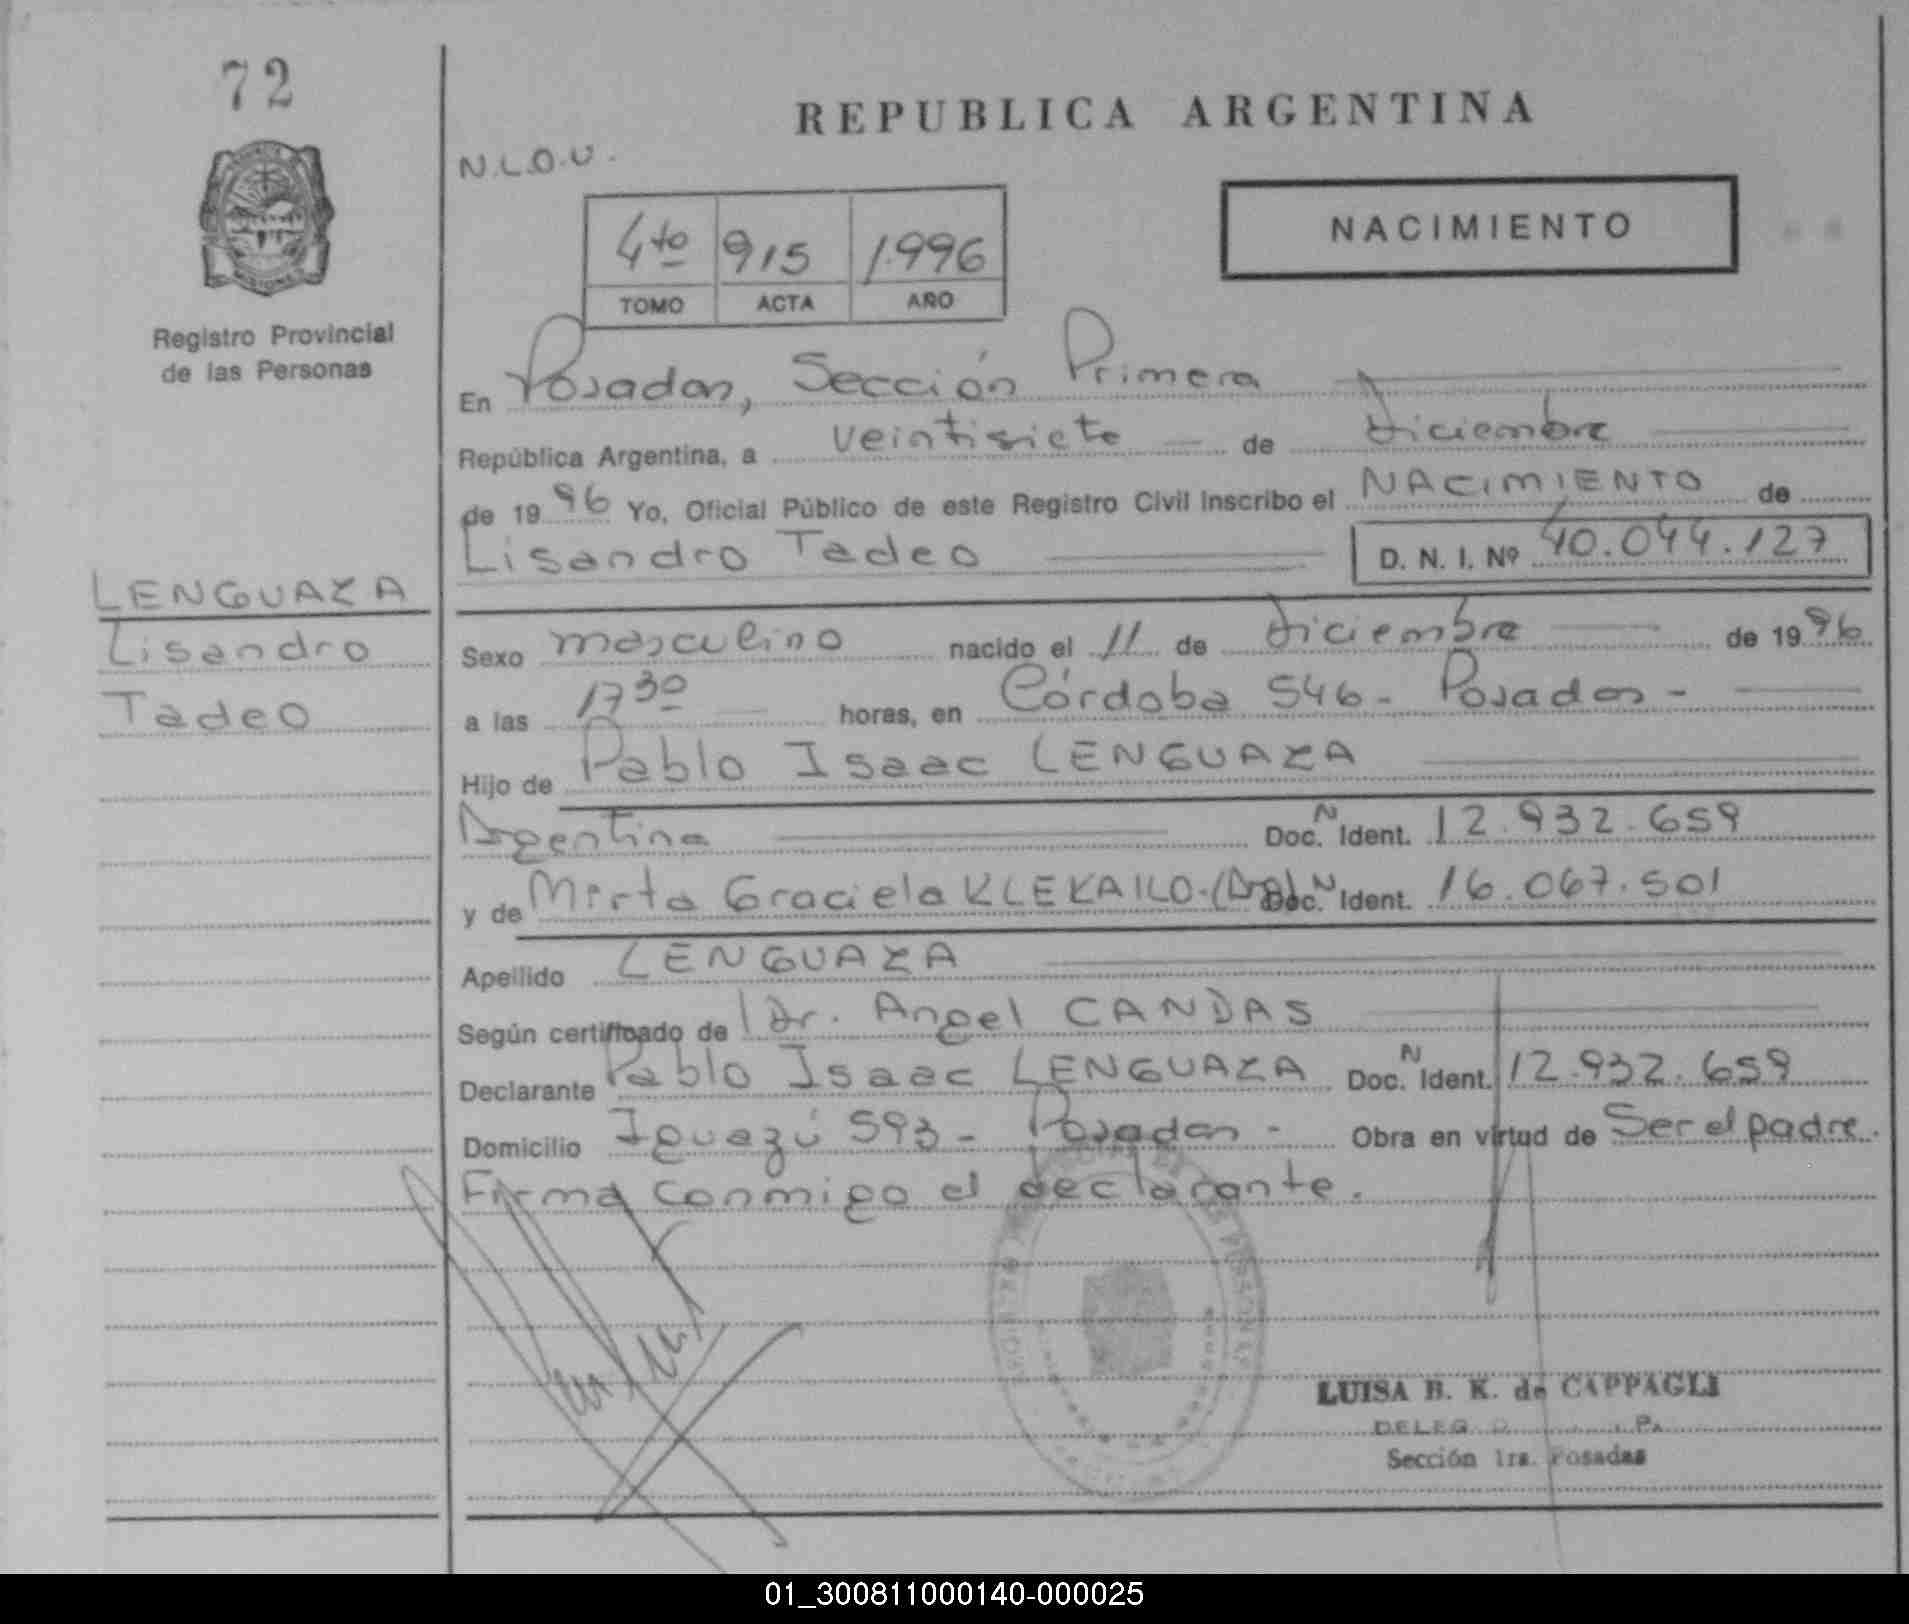 72
REPUBLICA ARGENTINA
N.L.O.U.
NACIMIENTO
4to 915 1996
TOMO ACTA AÑO
Registro Provincial
de las Personas
En Posadas, Sección Primera
República Argentina, a veintisiete de diciembre
de 1996 Yo, Oficial Público de este Registro Civil inscribo el NACIMIENTO de
Lisandro Tadeo D. N. I. Nº 40.044.127
LENGUAZA
Lisandro
Tadeo
Sexo masculino nacido el 11 de diciembre de 1996
a las 17 30 horas, en Córdoba 546 - Posadas -
Hijo de Pablo Isaac LENGUAZA
Argentina Doc. N Ident. 12.932.659
y de Mirta Graciela KLEKAILO-(Arg) Doc. N Ident. 16.067.501
Apellido LENGUAZA
Según certificado de Dr. Angel CANDAS
Declarante Pablo Isaac LENGUAZA Doc. N Ident. 12.932.659
Domicilio Iguazú 593 - Posadas - Obra en virtud de Ser el padre.
Firma conmigo el declarante.
LUISA B. K. de CAPPAGLI
DELEG
Sección 1ra. Posadas
01_300811000140-000025